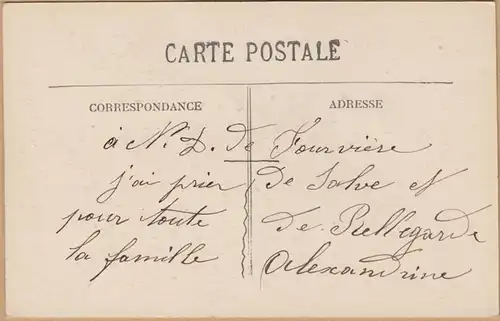 CARTE POSTALE
CORRESPONDANCE
ADRESSE
à N. D. de Fourvière
j'ai prier
pour toute
la famille
de Salve et
de Bellegarde
Alexandrine